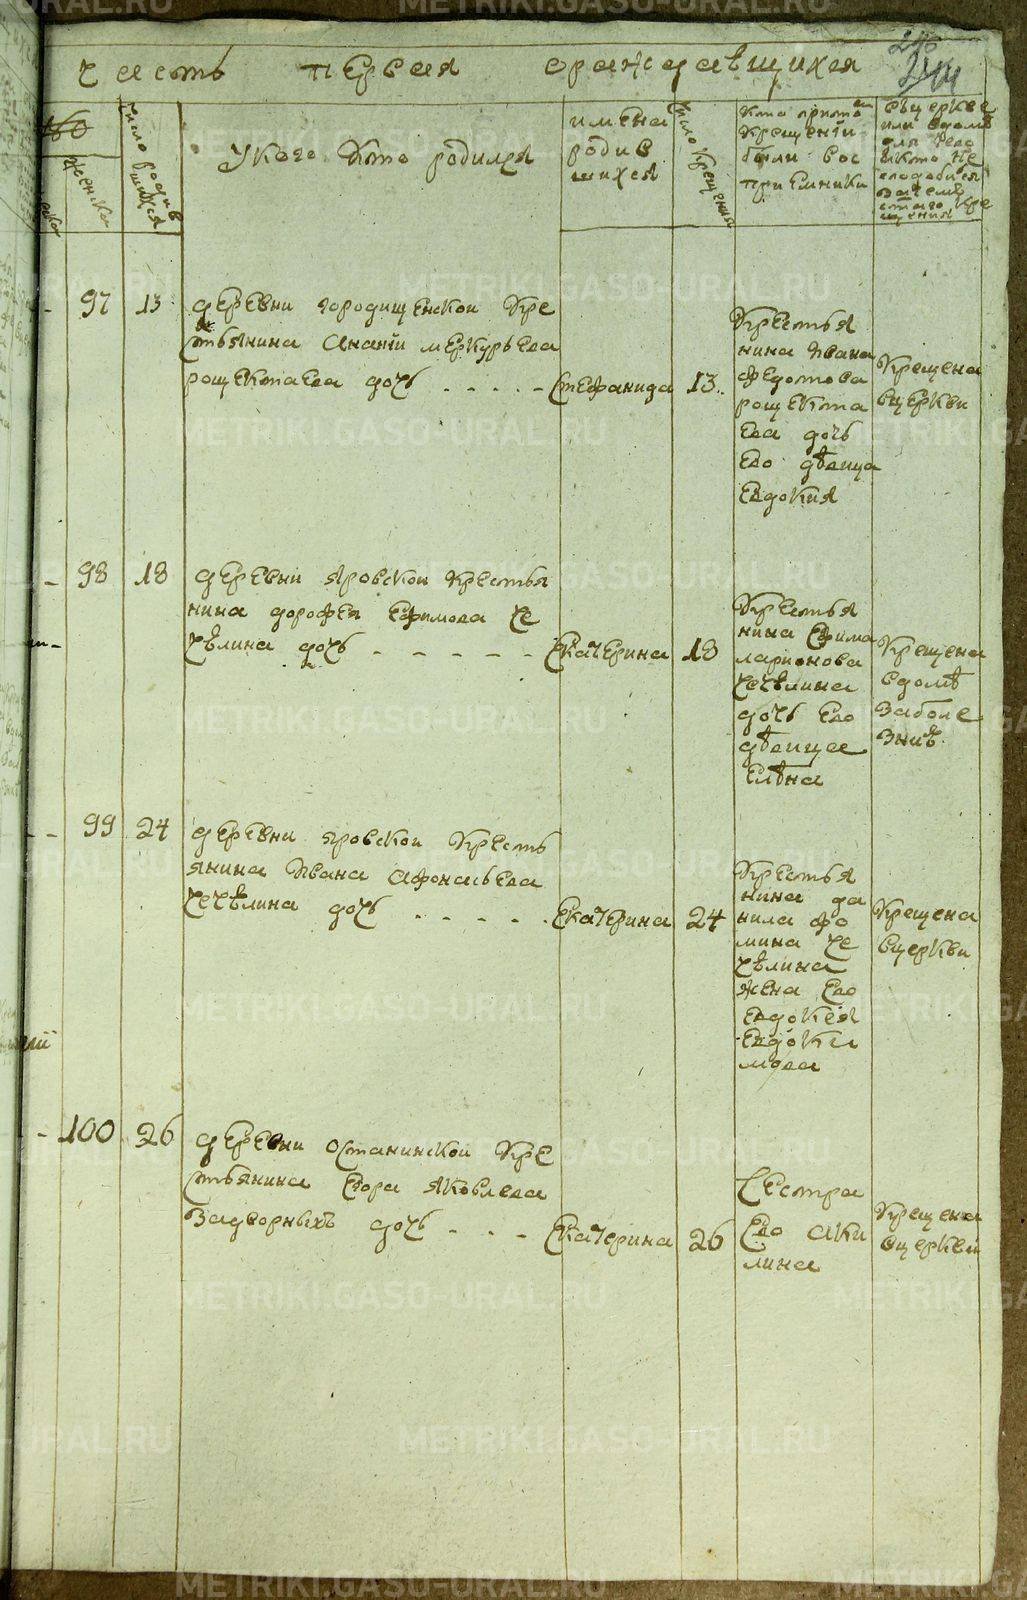 часть первая ораждавщихся
246
244
женска
число родив шихся
укого кто родился
имена
родив
шихся
число крещения
кто прито
крещенїи
были вос
приемники
вцеркве
или вдомѣ
для чего
97 13
деревни городищенской кре
стьянина Ананїи меркурьева
рощектаева дочь - - - - - Стефанида 13
крестья
нина Ивана
федотова
рощекта
ева дочь
его дѣвица
Евдокия
крещена
вцеркви
98 18
деревни яровской крестья
нина дорофея Ефимова че
чѣлина дочь - - - - - Екатерина 18
крестья
нина Ефима
ларионова
чечѣлина
дочь его
дѣвица
Елѣна
крещена
вдомѣ
заболе
знїѣ
99 24
деревни яровской кресть
янина Ивана афонасьева
чечѣлина дочь - - - - - Екатерина 24
крестья
нина да
нила фо
мина че
чѣлина
жена его
Евдокея
Евдоки
мова
крещена
вцеркви
100 26
деревни останинской кре
стьянина Егора яковлева
задворныхъ дочь - - - Екатерина 26
Сестра
Его аки
лина
крещена
вцеркви
METRIKI.GASO-URAL.RU